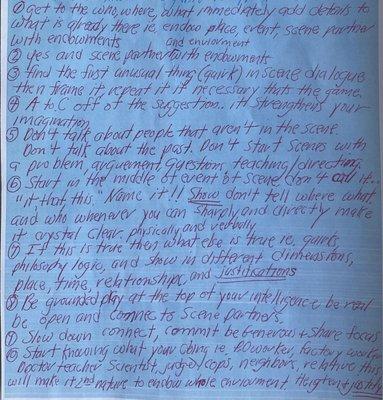 ① get to the who, where, what immediately add details to
what is already there ie. endow place, event, scene partner
with endowments
and enviorment
② yes and scene partner with endowments
③ find the first unusual thing (quirk) in scene dialogue
then frame it, repeat it if necessary thats the game.
④ A to C off of the suggestion.. it strengthens your
imagination
⑤ Don't talk about people that aren't in the scene
Don't talk about the past. Don't start scenes with
a problem, arguement, questions, teaching/directing.
⑥ Start in the middle of event of scene, don't call it...
"it, that, this." Name it!! Show don't tell where what
and who whenever you can sharply and directly make
it crystal clear. physically and verbally
⑦ If this is true then what else is true ie. quirks,
philosophy logic, and show in different dimenssions,
place, time, relationships, and justifications
⑧ Be grounded play at the top of your intelligence be real
be open and connect to scene partners.
⑨ Slow down connect, commit be Generous + Share focus
⑩ Start knowing what your doing ie. factory worker
Doctor teacher Scientist, judge, cops, neighbors, relative this
will make it 2nd nature to endow whole enviorment Heighten + justify